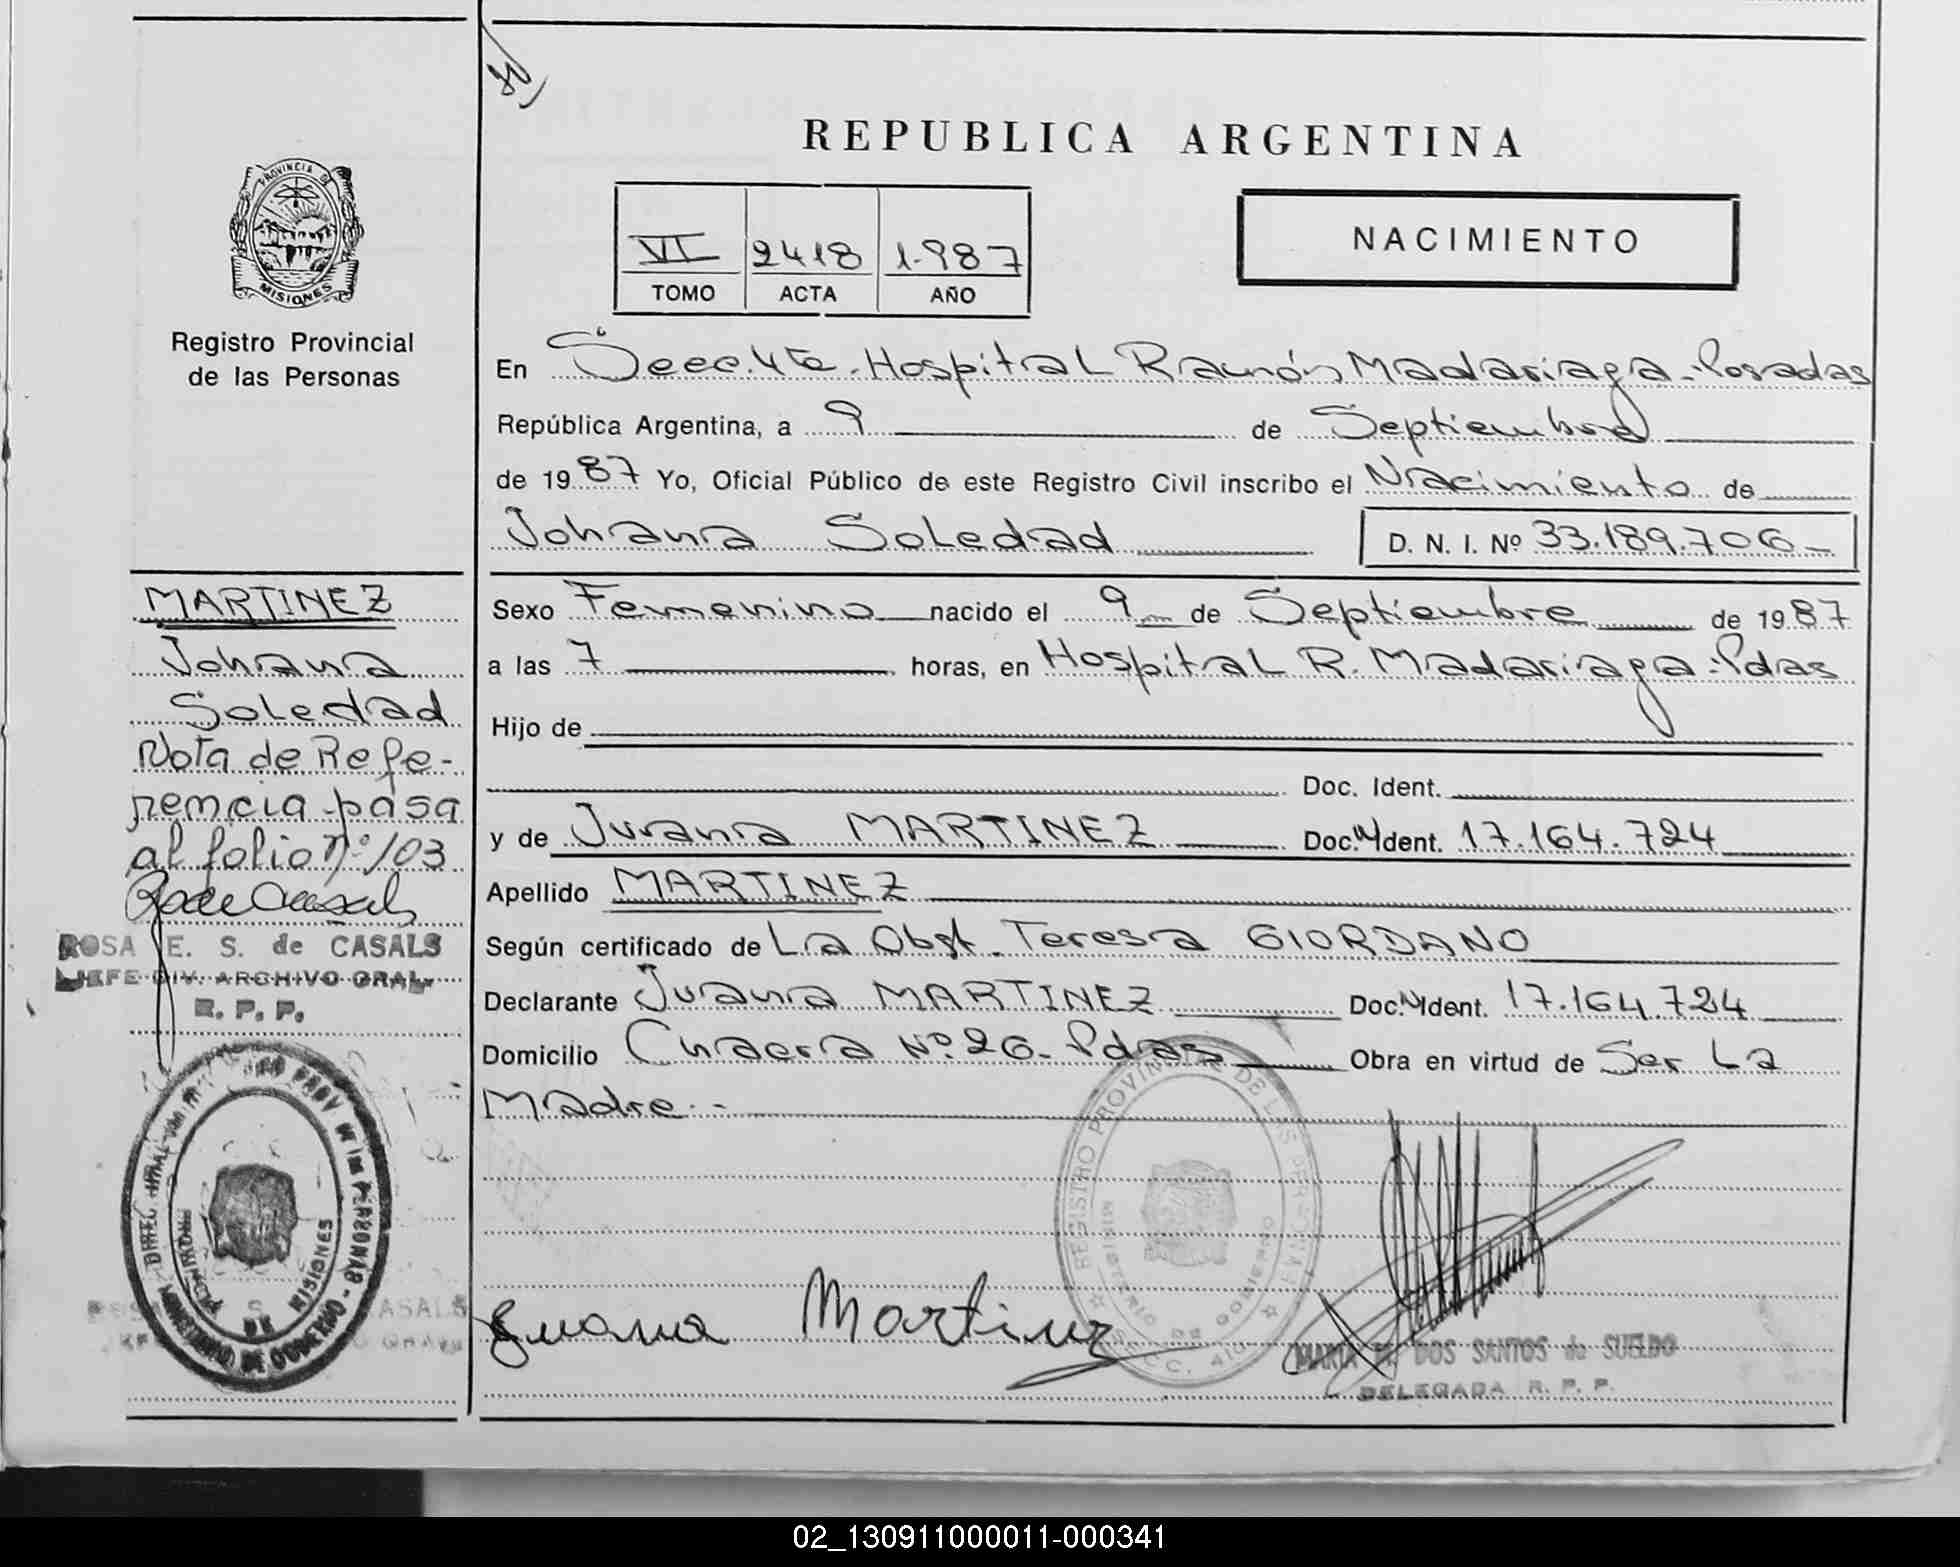 REPUBLICA ARGENTINA
PROVINCIA DE
MISIONES
Registro Provincial
de las Personas
VI 2418 1.987
TOMO ACTA AÑO
NACIMIENTO
En Secc. 4ta. Hospital Ramón Madariaga - Posadas
República Argentina, a 9 de Septiembre
de 1987 Yo, Oficial Público de este Registro Civil inscribo el Nacimiento de
Johana Soledad D. N. I. Nº 33.189.706-
Sexo Femenino nacido el 9 de Septiembre de 1987
a las 7 horas, en Hospital R. Madariaga - Pdas
Hijo de
Doc. Ident.
y de Juana MARTINEZ Doc. Ident. 17.164.724
Apellido MARTINEZ
Según certificado de La Obst. Teresa GIORDANO
Declarante Juana MARTINEZ Doc. Ident. 17.164.724
Domicilio Chacra Nº 26 - Pdas Obra en virtud de Ser La
Madre.-
MARTINEZ
Johana
Soledad
Nota de Refe-
rencia pasa
al folio nº 103
ROSA E. S. de CASALS
JEFE DIV. ARCHIVO GRAL.
R. P. P.
MINISTERIO DE GOBIERNO
MISIONES
REGISTRO PROVINCIAL DE LAS PERSONAS
MINISTERIO DE GOBIERNO
SECC. 4ta
Juana Martinez
DOS SANTOS de SUELDO
DELEGADA R. P. P.
02_130911000011-000341